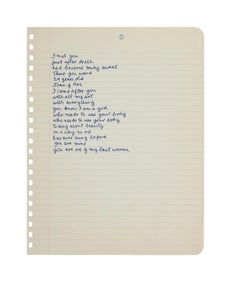 I met you
just after death
had become truly sweet
There you were
24 years old
Joan of Arc
I came after you
with all my art
with everything
you know I am a god
who needs to use your body
who needs to use your body
to sing about beauty
in a way no one
has ever sung before
you are mine
you are one of my last women